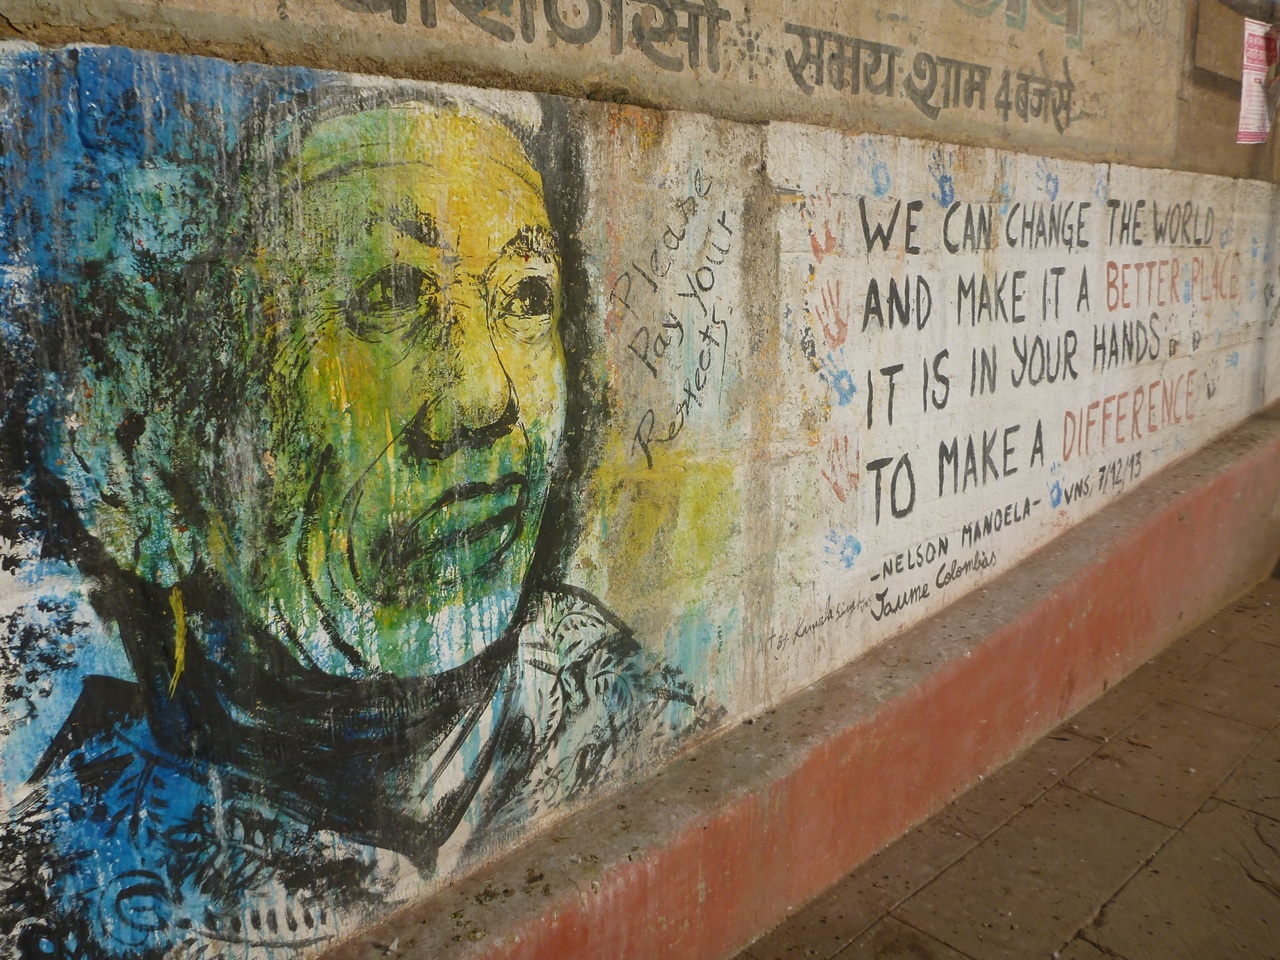 समय शाम 4 बजे से
Please
Pay Your
Respects
WE CAN CHANGE THE WORLD
AND MAKE IT A BETTER PLACE
IT IS IN YOUR HANDS
TO MAKE A DIFFERENCE
-NELSON MANDELA- VNS, 7/12/13
Jaume Colombàs